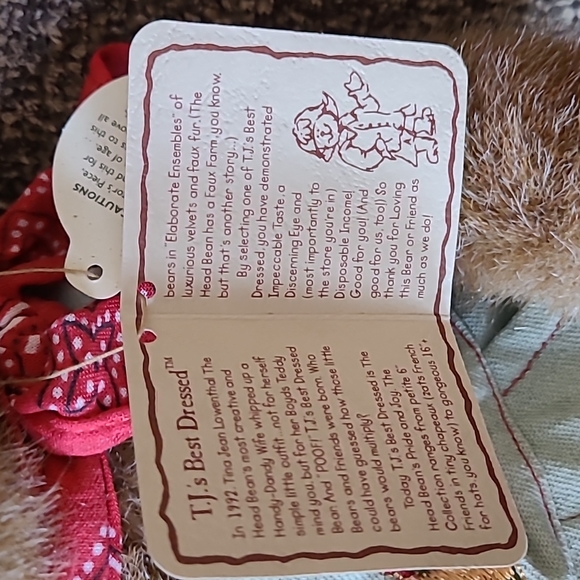 T.J.'s Best Dressed™
In 1992, Tina Jean Lowenthal The
Head Bean's most creative and
Handy-Dandy Wife whipped up a
simple little outfit..not for herself
mind you, but for her Boyds Teddy
Bear. And "POOF!" T.J.'s Best Dressed
Bears and Friends were born. Who
could have guessed how those little
beans would multiply?
Today T.J.'s Best Dressed is The
Head Bean's Pride and Joy. The
Collection ranges from petite 6"
Friends in tiny chapeaux (zats French
for hats, you know) to gorgeous 16"+
bears in "Elaborate Ensembles" of
luxurious velvets and faux fur. (The
Head Bean has a Faux Farm ,you know,
but that's another story...)
By selecting one of T.J.'s Best
Dressed, you have demonstrated
Impeccable Taste, a
Discerning Eye and
(most importantly to
the store you're in)
Disposable Income!
Good for you! (And
good for us, too!) So
thank you for Loving
this Bear or Friend as
much as we do!
CAUTIONS
or's Piece.
nd this for
of age.
s to this
ove all